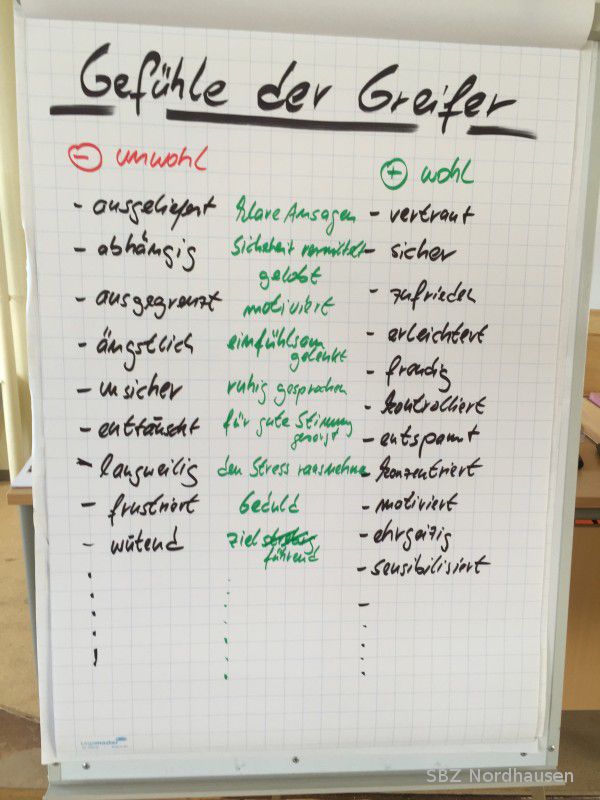 Gefühle der Greifer
⊖ unwohl
- ausgeliefert
- abhängig
- ausgegrenzt
- ängstlich
- unsicher
- enttäuscht
- langweilig
- frustriert
- wütend
klare Ansagen
Sicherheit vermittelt
gelobt
motiviert
einfühlsam
gelenkt
ruhig gesprochen
für gute Stimmung
gesorgt
den Stress rausnehmen
Geduld
ziel
führend
⊕ wohl
- vertraut
- sicher
- zufrieden
- erleichtert
- freudig
- kontrolliert
- entspannt
- konzentriert
- motiviert
- ehrgeizig
- sensibilisiert
SBZ Nordhausen